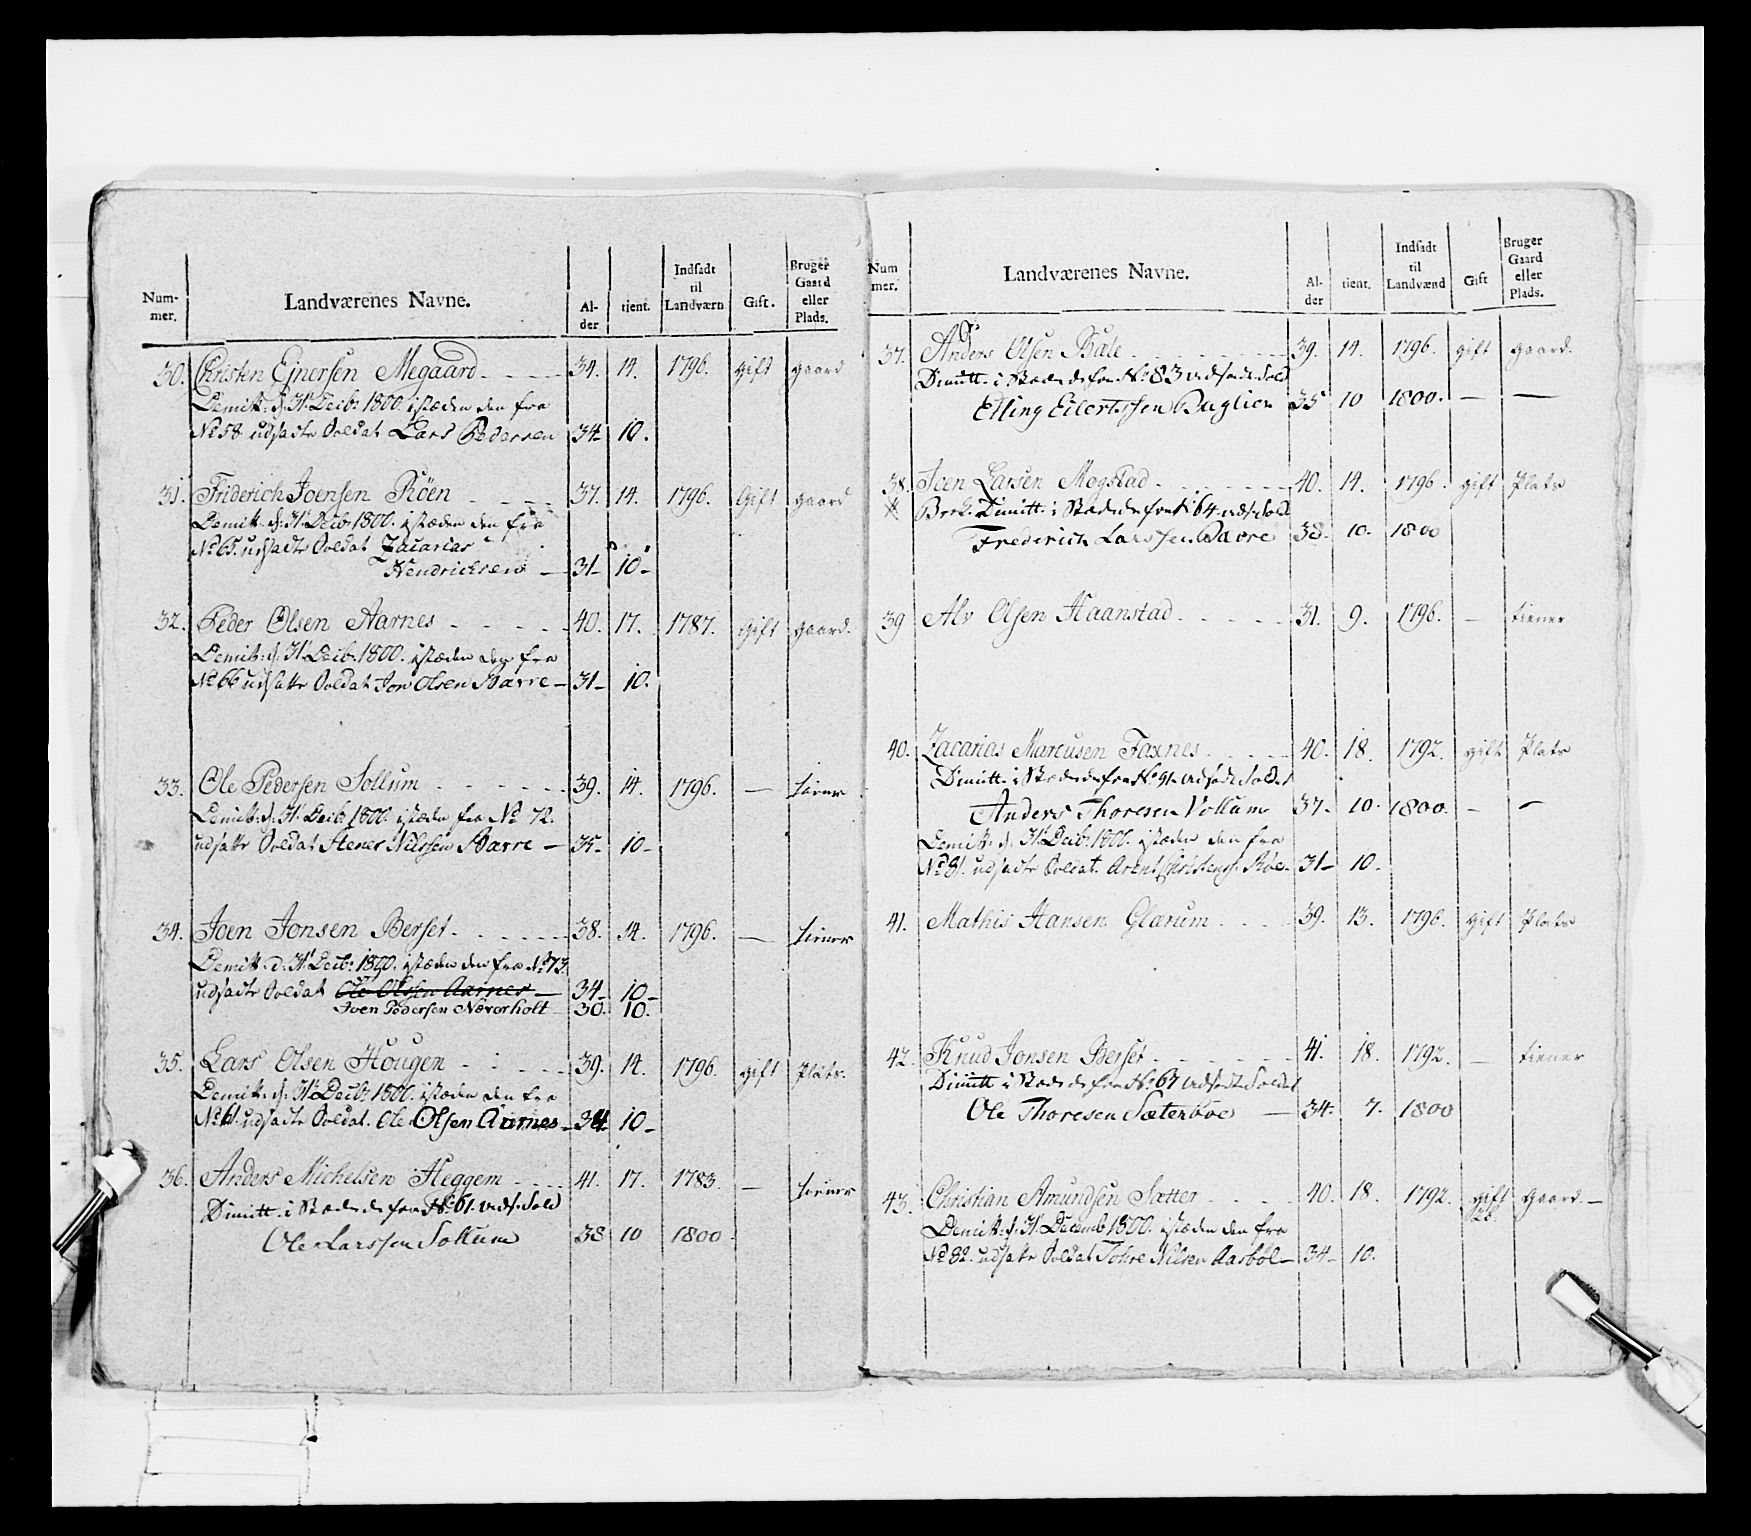 Num-
mer.
Landværenes Navne.
Al-
der
tient.
Indsadt
til
Landværn
Gift.
Bruger
Gaard
eller
Plads.
30. Christen Ejnersen Megaard 34. 14. 1796. gift gaard
Demitt: d: 31t Decbr 1800. istæden den fra
No 58 udsadte Soldat Lars Pedersen 34 10.
31. Friderich Joensen Röen 37. 14. 1796. Gift gaard
Demitt: d: 31t Decbr 1800. istæden den fra
No 65. udsadte Soldat Zacarias
Hendrichsen 31 10
32. Peder Olsen Aarnes 40. 17. 1787. gift gaard.
Demitt: d: 31t Decbr 1800. istæden den fra
No 66 udsatte Soldat Jon Olsen Bævre 31 10.
33. Ole Pedersen Sollum 39. 14. 1796. — tiener
Demitt: d: 31t Decbr 1800. istæden fra No 72.
udsatte Soldat Stener Nilssen Bævre 35 10
34. Joen Jonsen Berset 38. 14. 1796. — tiener
Demitt: d: 31t Decbr 1800. istæden den fra No 73
udsadte Soldat Ole Olssen Aarnes 34 10
Joen Pedersen Næverholt 30. 10.
35. Lars Olsen Hougen 39. 14. 1796. gift Plats.
Demitt: d: 31t Decbr 1800. istæden den fra
No 61. udsadte Soldat. Ole Olsen Aarnes 34 10
36. Anders Michelsen Heggem 41. 17. 1783. — tiener
Dimitt: i Stæden de fra No 61. udst. Sold
Ole Larssen Sollum 38 10 1800
Num
mer.
Landværenes Navne.
Al-
der
tient.
Indsadt
til
Landvænd
Gift
Bruger
Gaard
eller
Plads.
37. Anders Olsen Bæle 39. 14. 1796. gift gaard.
Dimitt: i Stæden de fra No 83 udsadte Sold
Elling Eilertssen Buglien 35 10 1800. — —
38. Joen Larsen Mogstad 40. 14. 1796. gift Plats
Dimitt: i Stæden de fra No 64. udst. Sold
Frederich Larssen Bævre 38. 10. 1800
39 Alv Olsen Haanstad 31. 9. 1796. — tiener
40. Zacarias Marcusen Faxnes 40. 18. 1792. gift Plats
Dimitt: i Stæden de fra No 91. udsadte Soldat
Anders Thoresen Vollum 37 10. 1800. — —
Demitt: d: 31t Decbr 1800. istæden den fra
No 81. udsadte Soldat. Arent Christens: Röe 31 10.
41. Mathis Hansen Glærum 39. 13. 1796. gift Plats
42. Knud Jonsen Berset 41. 18. 1792. — tiener
Dimitt i Stæden de fra No 67 udsadte Soldat
Ole Thoresen Sæterböe 34. 7. 1800
43. Christian Amundsen Sætter 40. 18. 1792. gift gaard.
Demitt: d: 31t Decemb 1800. istæden den fra
No 82. udsatte Soldat Tohre Nilsen Aasböl 34 10.